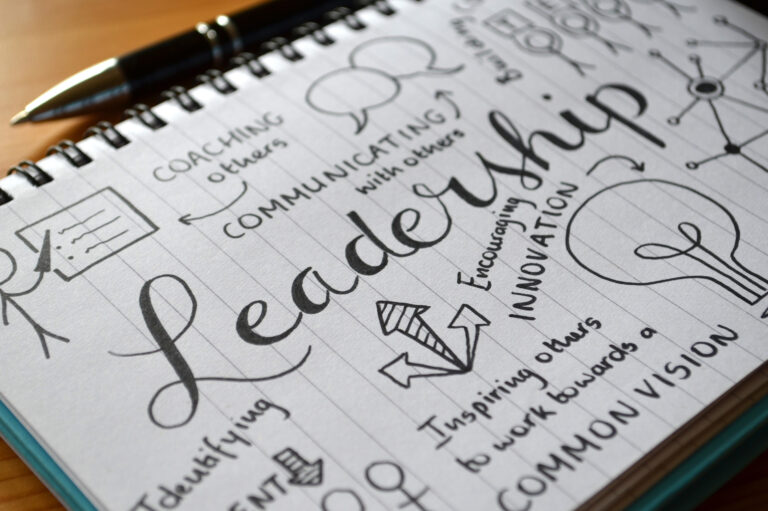 Building
COACHING
others
COMMUNICATING
with others
Leadership
Encouraging
INNOVATION
Inspiring others
to work towards a
COMMON VISION
Identifying